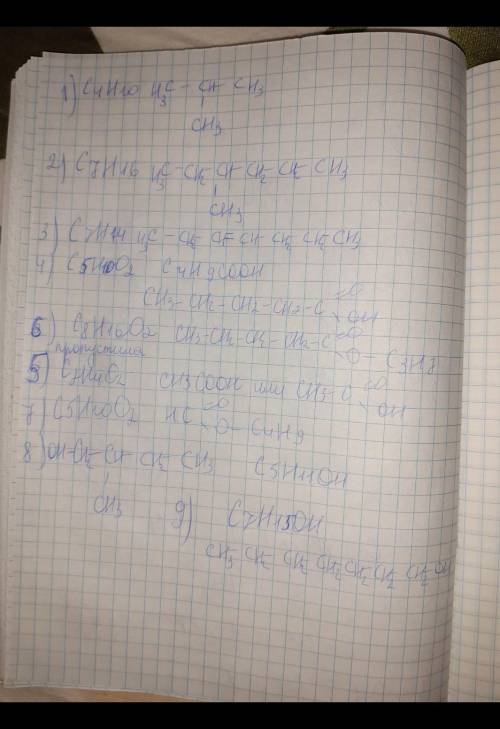 1) C4H10 H3C - CH - CH3
CH3
2) C7H16 H3C - CH2 - CH CH2 - CH2 - CH3
CH3
3) C7H14 H3C - CH2 - CH = CH CH2 CH2 CH3
4) C5H10O2 C4H9COOH
CH3 - CH2 - CH2 - CH2 - C =O OH
6) C8H16O2 CH3 - CH2 - CH2 - CH2 - C =O O - C3H8
пропустила
5) C2H4O2 CH3COOH или CH3 - C =O OH
7) C5H10O2 HC =O O - C4H9
8) OH - CH2 - CH CH2 CH3 C5H11OH
CH3
9) C7H15OH
CH3 CH2 CH2 CH2 CH2 CH2 CH2 OH